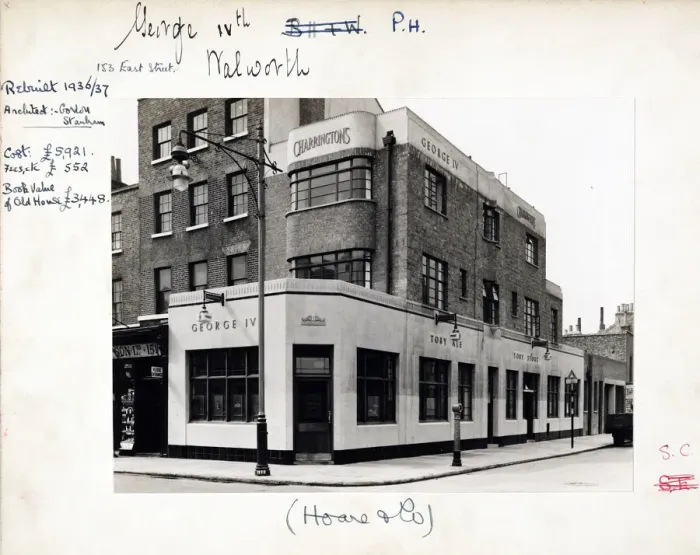 George IVth B.H.+W. P.H.
183 East Street.
Walworth
Rebuilt 1936/37
Architect:- Gordon
Stanham
Cost. £5,921.
Fees, etc £ 552
Book Value
of Old House £3,448.
CHARRINGTONS
GEORGE IV
CHARRINGTONS
GEORGE IV
TOBY ALE
TOBY STOUT
(Hoare & Co)
S.C.